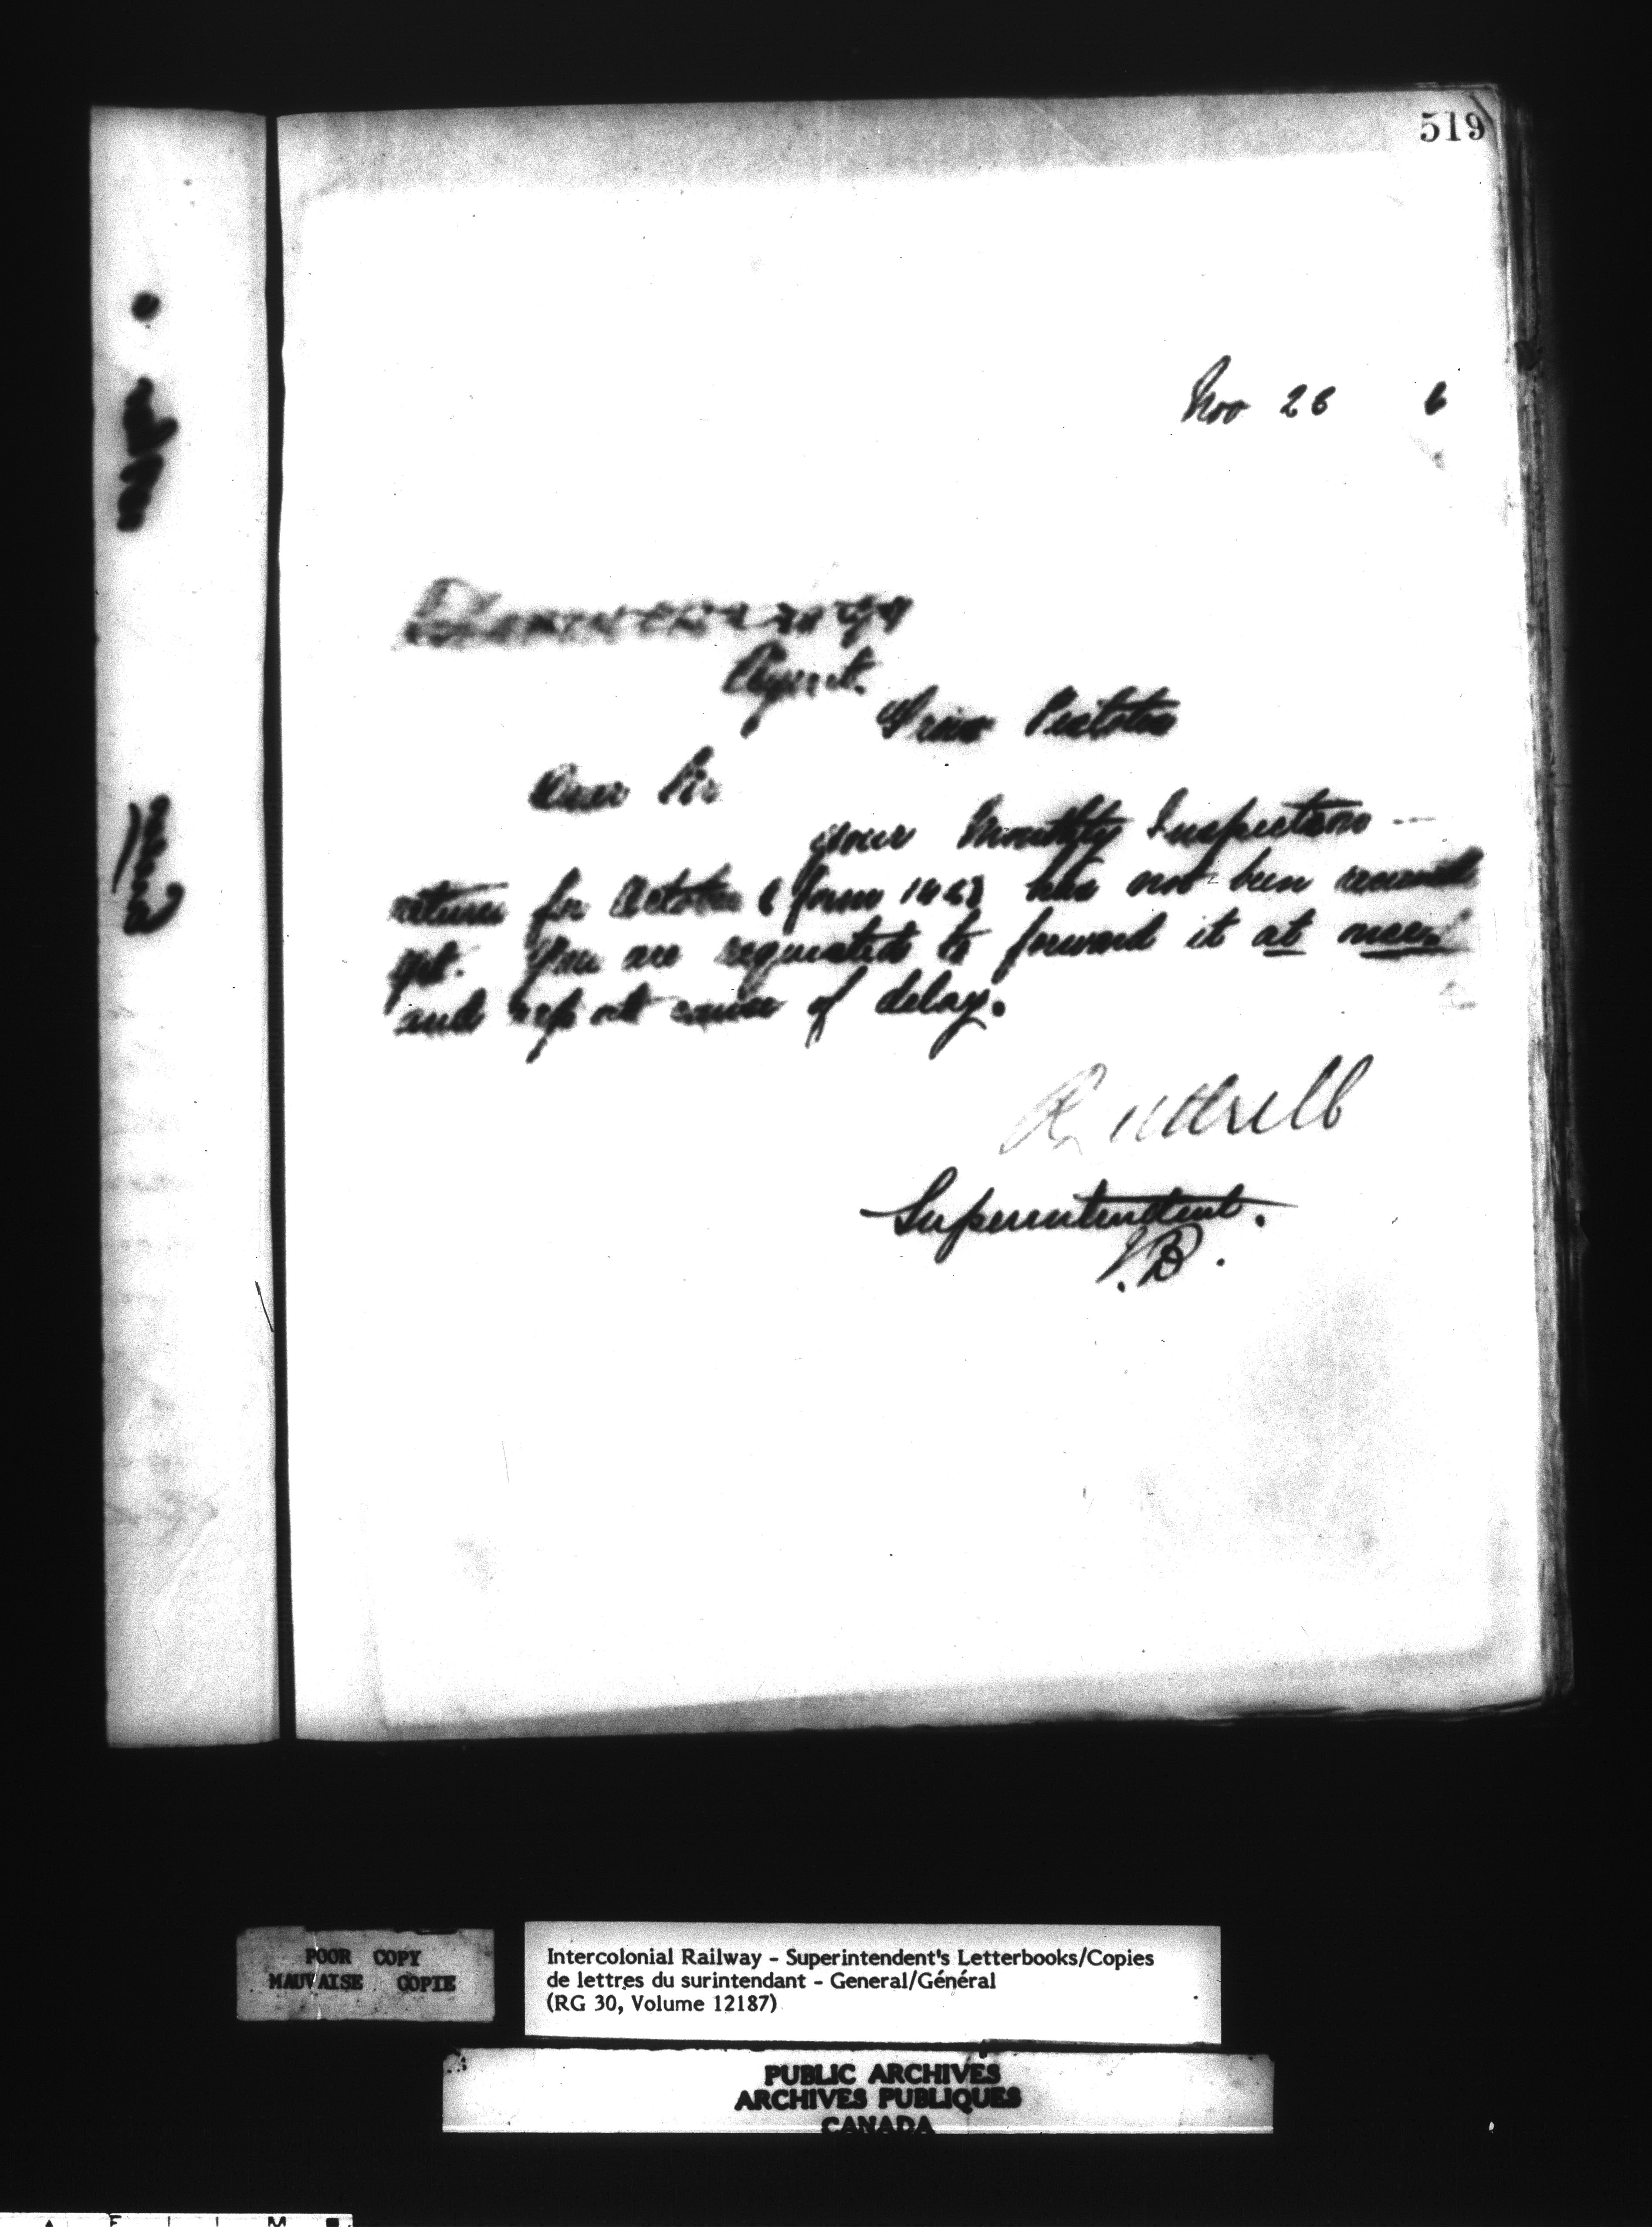 519
Nov 26 6
Agent.
Dear Sir
your Monthly Inspection
return for October (form ) has not been received
yet. You are requested to forward it at once
and report cause of delay.
Superintendent.
POOR COPY
MAUVAISE COPIE
Intercolonial Railway - Superintendent's Letterbooks/Copies
de lettres du surintendant - General/Général
(RG 30, Volume 12187)
PUBLIC ARCHIVES
ARCHIVES PUBLIQUES
CANADA